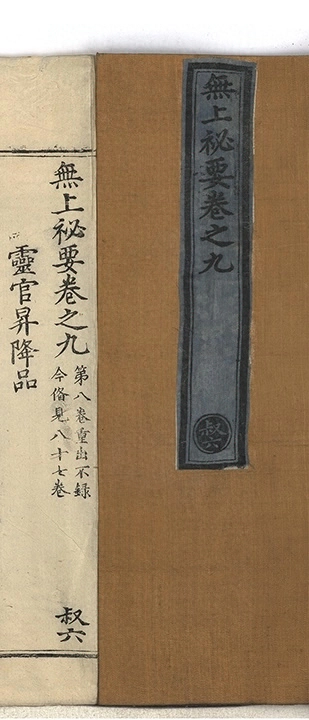 無上祕要卷之九
叔六
無上祕要卷之九
第八卷重出不録
今俻見八十七卷
叔六
靈官昇降品